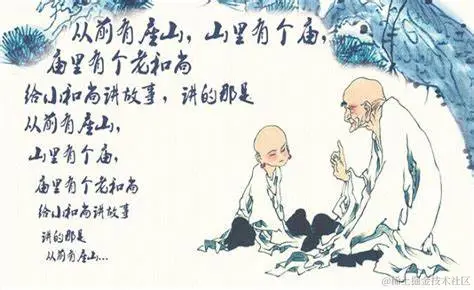 从前有座山，山里有个庙，
庙里有个老和尚
给小和尚讲故事，讲的那是
从前有座山，
山里有个庙，
庙里有个老和尚
给小和尚讲故事
讲的那是
从前有座山...
@稀土掘金技术社区